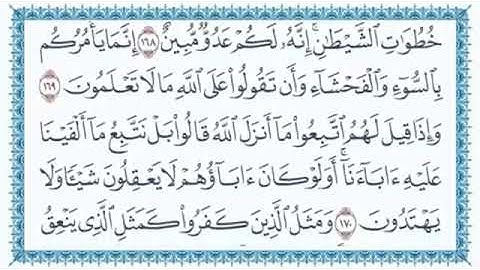 خُطُوَٰتِ ٱلشَّيْطَٰنِ ۚ إِنَّهُۥ لَكُمْ عَدُوٌّ مُّبِينٌ ١٦٨ إِنَّمَا يَأْمُرُكُم
بِٱلسُّوٓءِ وَٱلْفَحْشَآءِ وَأَن تَقُولُوا۟ عَلَى ٱللَّهِ مَا لَا تَعْلَمُونَ ١٦٩
وَإِذَا قِيلَ لَهُمُ ٱتَّبِعُوا۟ مَآ أَنزَلَ ٱللَّهُ قَالُوا۟ بَلْ نَتَّبِعُ مَآ أَلْفَيْنَا
عَلَيْهِ ءَابَآءَنَآ ۗ أَوَلَوْ كَانَ ءَابَآؤُهُمْ لَا يَعْقِلُونَ شَيْـًٔا وَلَا
يَهْتَدُونَ ١٧٠ وَمَثَلُ ٱلَّذِينَ كَفَرُوا۟ كَمَثَلِ ٱلَّذِى يَنْعِقُ